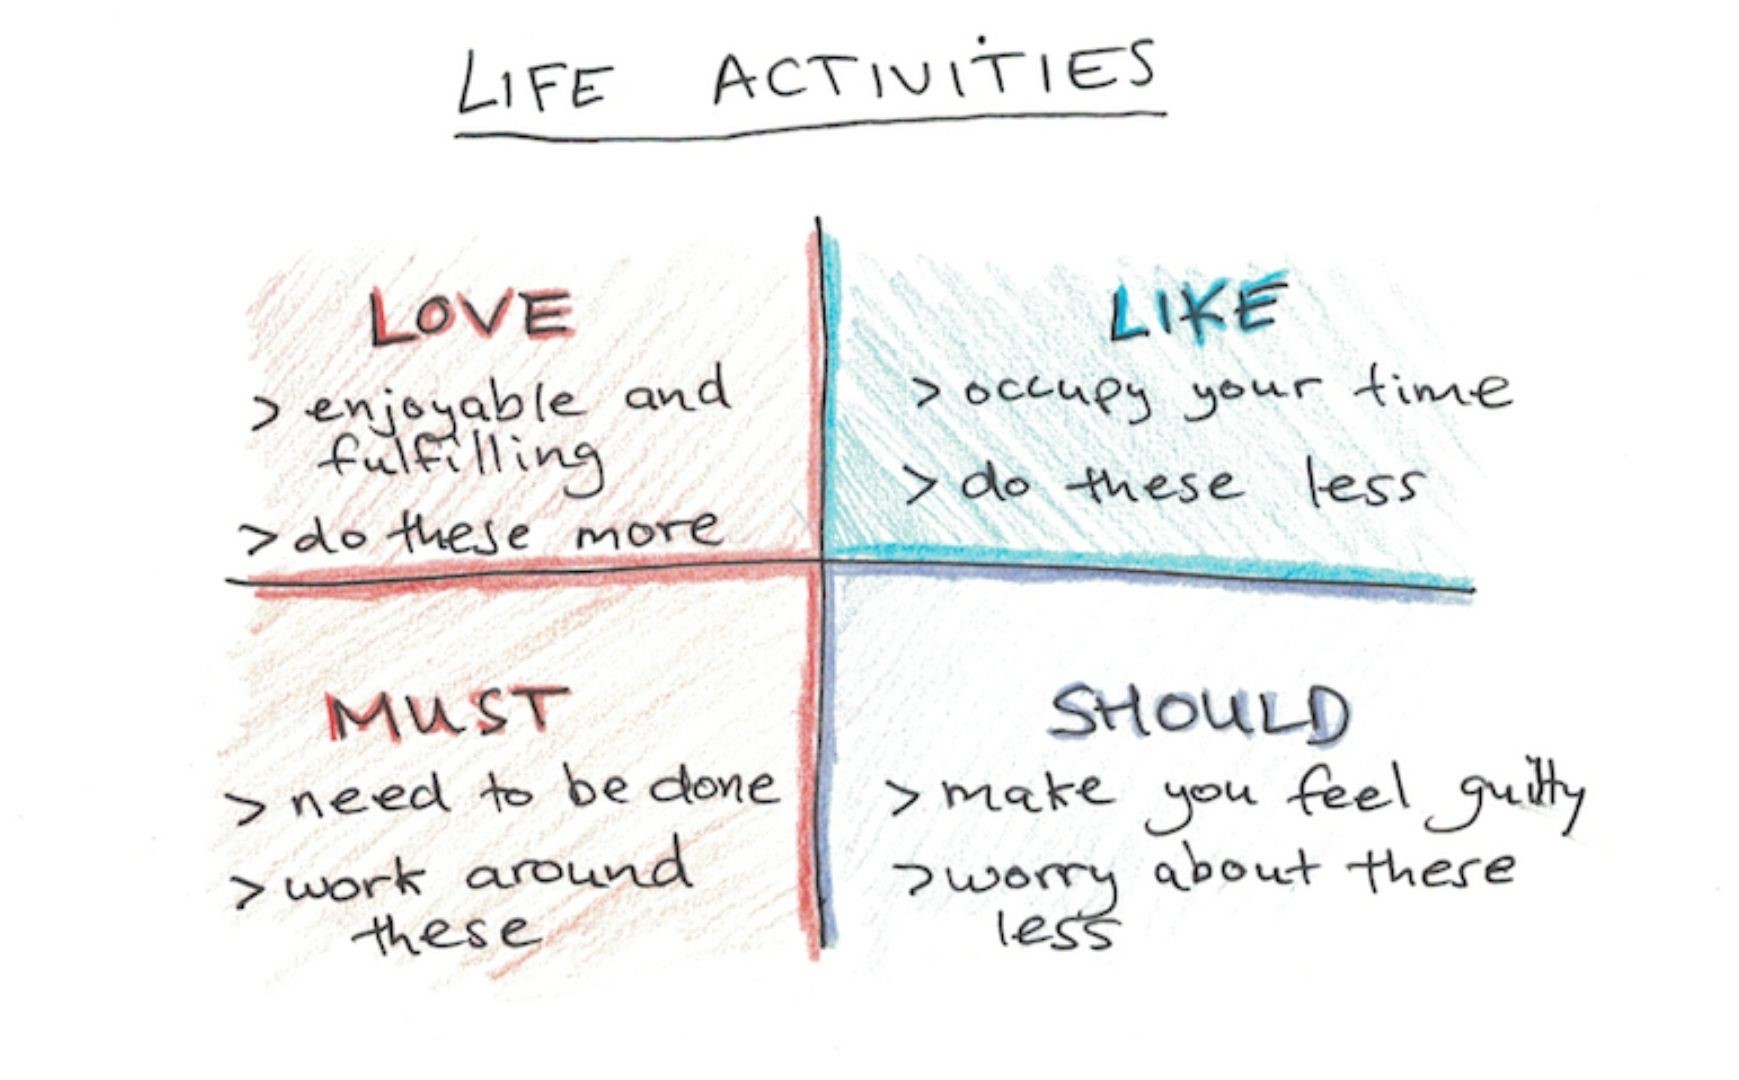 LIFE ACTIVITIES
LOVE
> enjoyable and
fulfilling
> do these more
LIKE
> occupy your time
> do these less
MUST
> need to be done
> work around
these
SHOULD
> make you feel guilty
> worry about these
less